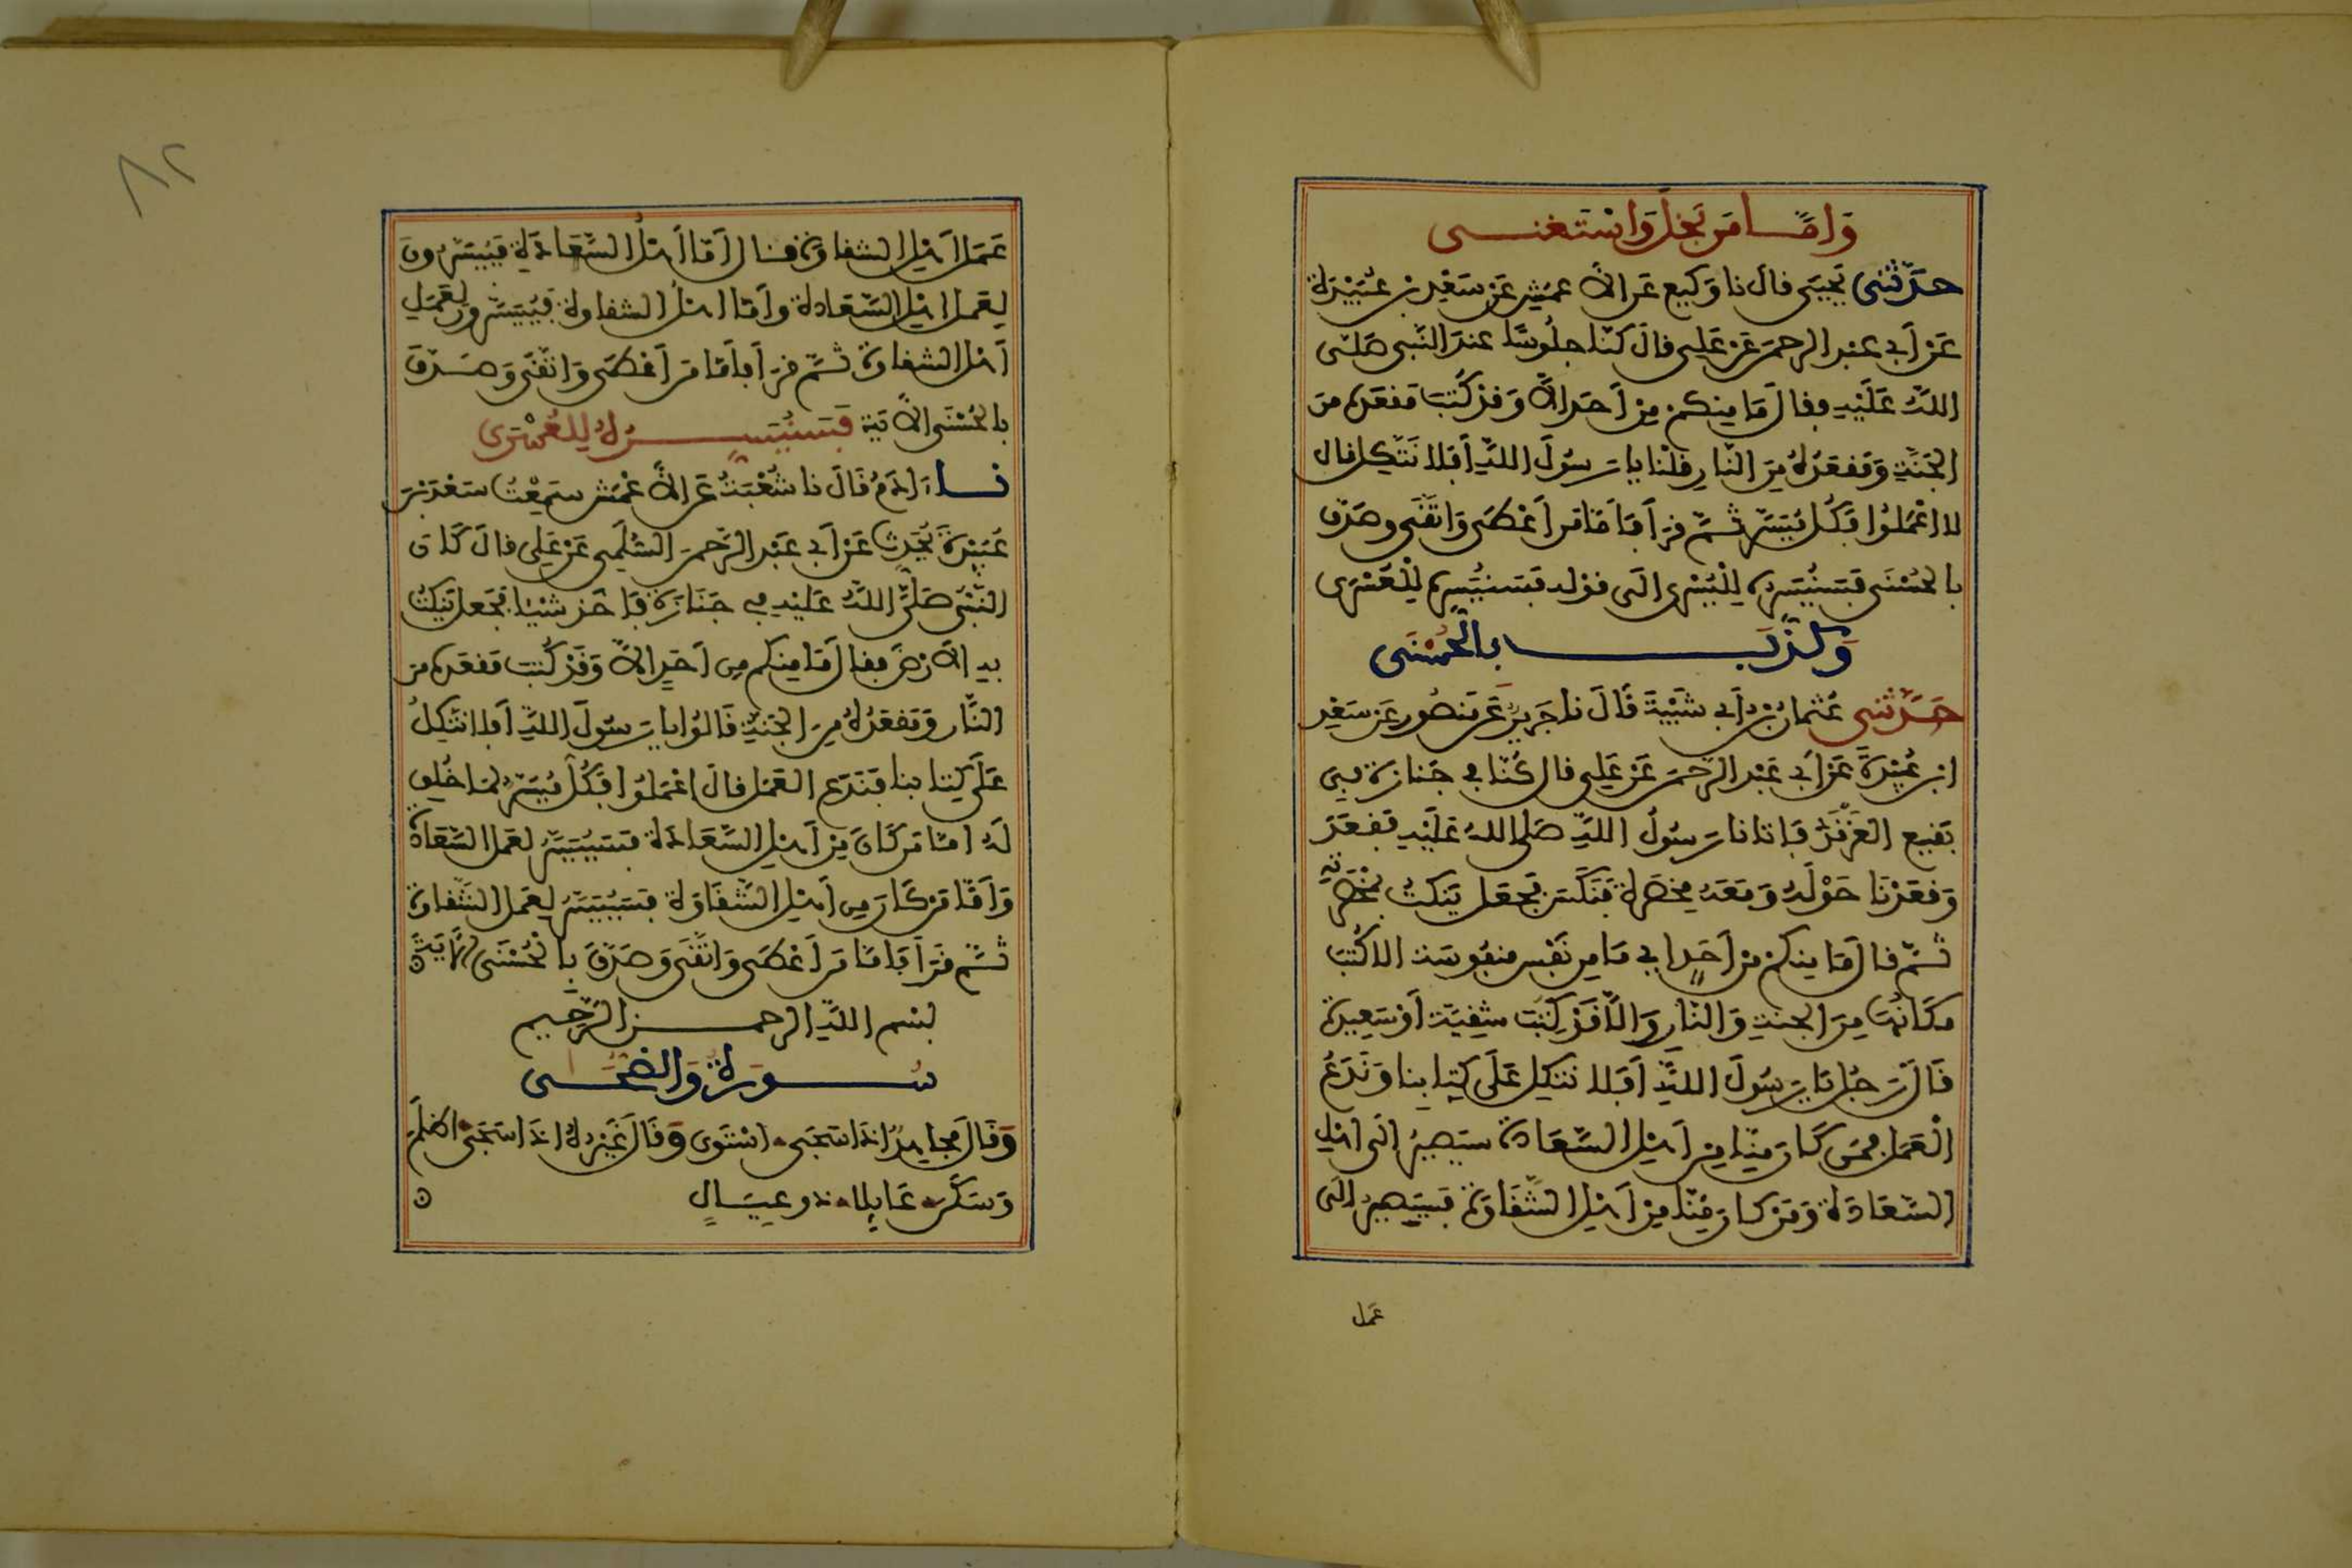 وَامَّا مَن بَخِلَ وَاسْتَغْنَى
حدَّثنى يَحيَى فال نا وَكيع عَن الاَعمَشِ عَن سَعْدِ بْن عُبَيْدَة
عَن أبى عبد الرحمَن عَن عَلِى فالَ كنّا جلُوسًا عند النَّبى صَلَّى
اللهُ عَلَيْهِ ففالَ مَا مِنكم مِن اَحَد الاَّ وَفد كُتِبَ مَفعَده مِنَ
الجَنَّةِ وَمَفعَدُهُ مِنَ النّارِ فلْنا يا رَسُولَ اللهِ أَفلا نَتَّكِل فال
لا اعْمَلُوا فَكُل مُيَسَّر ثمَّ فرَأَ فَأمَّا مَن أَعْطَى وَاتَّفَى وصَدَّق
بالحُسْنَى فَسَنُيَسِّره لِلْيُسْرى الَى فوْله فسَنُيَسِّره لِلْعُسْرَى
وَكذَّبَ بالْحُسْنَى
حَدَّثَنى عُثمان بْن أَبى شَيْبَةَ قَالَ نا جَرِيرٌ عَن مَنصُور عَن سَعْدِ
ابْن عُبَيْدَةَ عَن أَبى عَبْد الرَّحمَن عَن عَلِى فال كُنَّا فى جَنازة فِى
بَفيع الغَرْفَدِ فَاتانا رَسُولُ اللهِ صَلى اللهُ عَلَيْهِ فَفعَدَ
وَفعَدْنَا حَوْلَهُ وَمَعَهُ مِخصَرة فَنَكَّسَ فجَعَل يَنكتُ بمِخْصَرتِهِ
ثمَّ فالَ مَا مِنكم مِن أَحَدٍ أو مَا مِن نَفْس منفُوسَة الا كُتبَ
مكَانُهَا مِنَ الجنةِ وَالنّارِ وَالاَّ فَد كُتِبَت شفِيّة أوْ سَعِيدة
فَالَ رَجُل يَا رَسُولَ اللهِ أَفَلا نتكِل عَلَى كِتابِنا وَنَدَعُ
الْعَمَل فمَن كَانَ مِنّا مِن أَهْلِ السَّعَادة سيَصِيرُ الَى اهْلِ
السَّعَادَة وَمَن كانَ مِنّا مِن أَهْل الشَّفَاوَة فسَيَصِيرُ الَى
عمَل
٨٢
عَمَل اَهْلِ الشفاوَة فال أَمَّا أَهْلُ السَّعَادَة فيُيَسَّرُونَ
لِعَمل اهْلِ السَّعَادة وأمّا اهْلُ الشفاوة فيُيَسَّرون لِعَمَلِ
أَهْل الشفاوة ثمَّ فرَأَ فأَمَّا مَن أَعْطَى وَاتَّفَى وَصَدَّقَ
بالحُسْنَى الاَيَة فَسَنُيَسِّرُهُ لِلعُسْرَى
نا ءَادَمُ فَالَ نا شُعْبَةُ عَن الاَعْمَش سَمِعْتُ سَعْدَ بْنَ
عُبَيْدَة يُحَدِثُ عَن أَبى عَبْد الرَّحمَن السُّلَمِى عَن عَلِى فال كَانَ
النَّبِىُّ صَلَّى اللهُ عَلَيْهِ فى جَنَازَة فَاَخَذ شيْئا فجَعل يَنكتُ
به الاَرْض ففالَ مَا مِنكم مِن أَحَدٍ الاَّ وَفَدْ كُتبَ مَفعَده مِنَ
النَّار وَمَفعَدُهُ مِنَ الجَنةِ فَالُوا يا رَسُولَ اللهِ أَفلا نتّكِلُ
عَلَى كِتابنا فَنَدَع العَمَل فالَ اعْمَلُوا فَكُلٌّ مُيَسَّرٌ لمَا خُلِق
لَهُ امّا مَن كَانَ مِن أَهْلِ السَّعَادَة فسَيُيَسَّرُ لِعَمل السَّعَادة
وَأَمَّا مَن كَانَ مِن أَهْلِ الشَّفَاوَة فسَيُيَسَّرُ لِعَمَل الشَّفاوة
ثمَّ فرَأَ فَأمَّا مَن أَعْطَى وَاتَّفَى وَصَدَّقَ بالْحُسْنَى الاَيَةَ
بسْم اللهِ الرحمن الرَّحِيم
سُورَة وَالضُّحَى
وَقَالَ مجاهِدٌ اذَا سَجَى اسْتَوَى وَقَالَ غَيْرُهُ اذَا سَجَى اَظلَمَ
وَسَكَنَ عَائِلا ذو عِيَالٍ